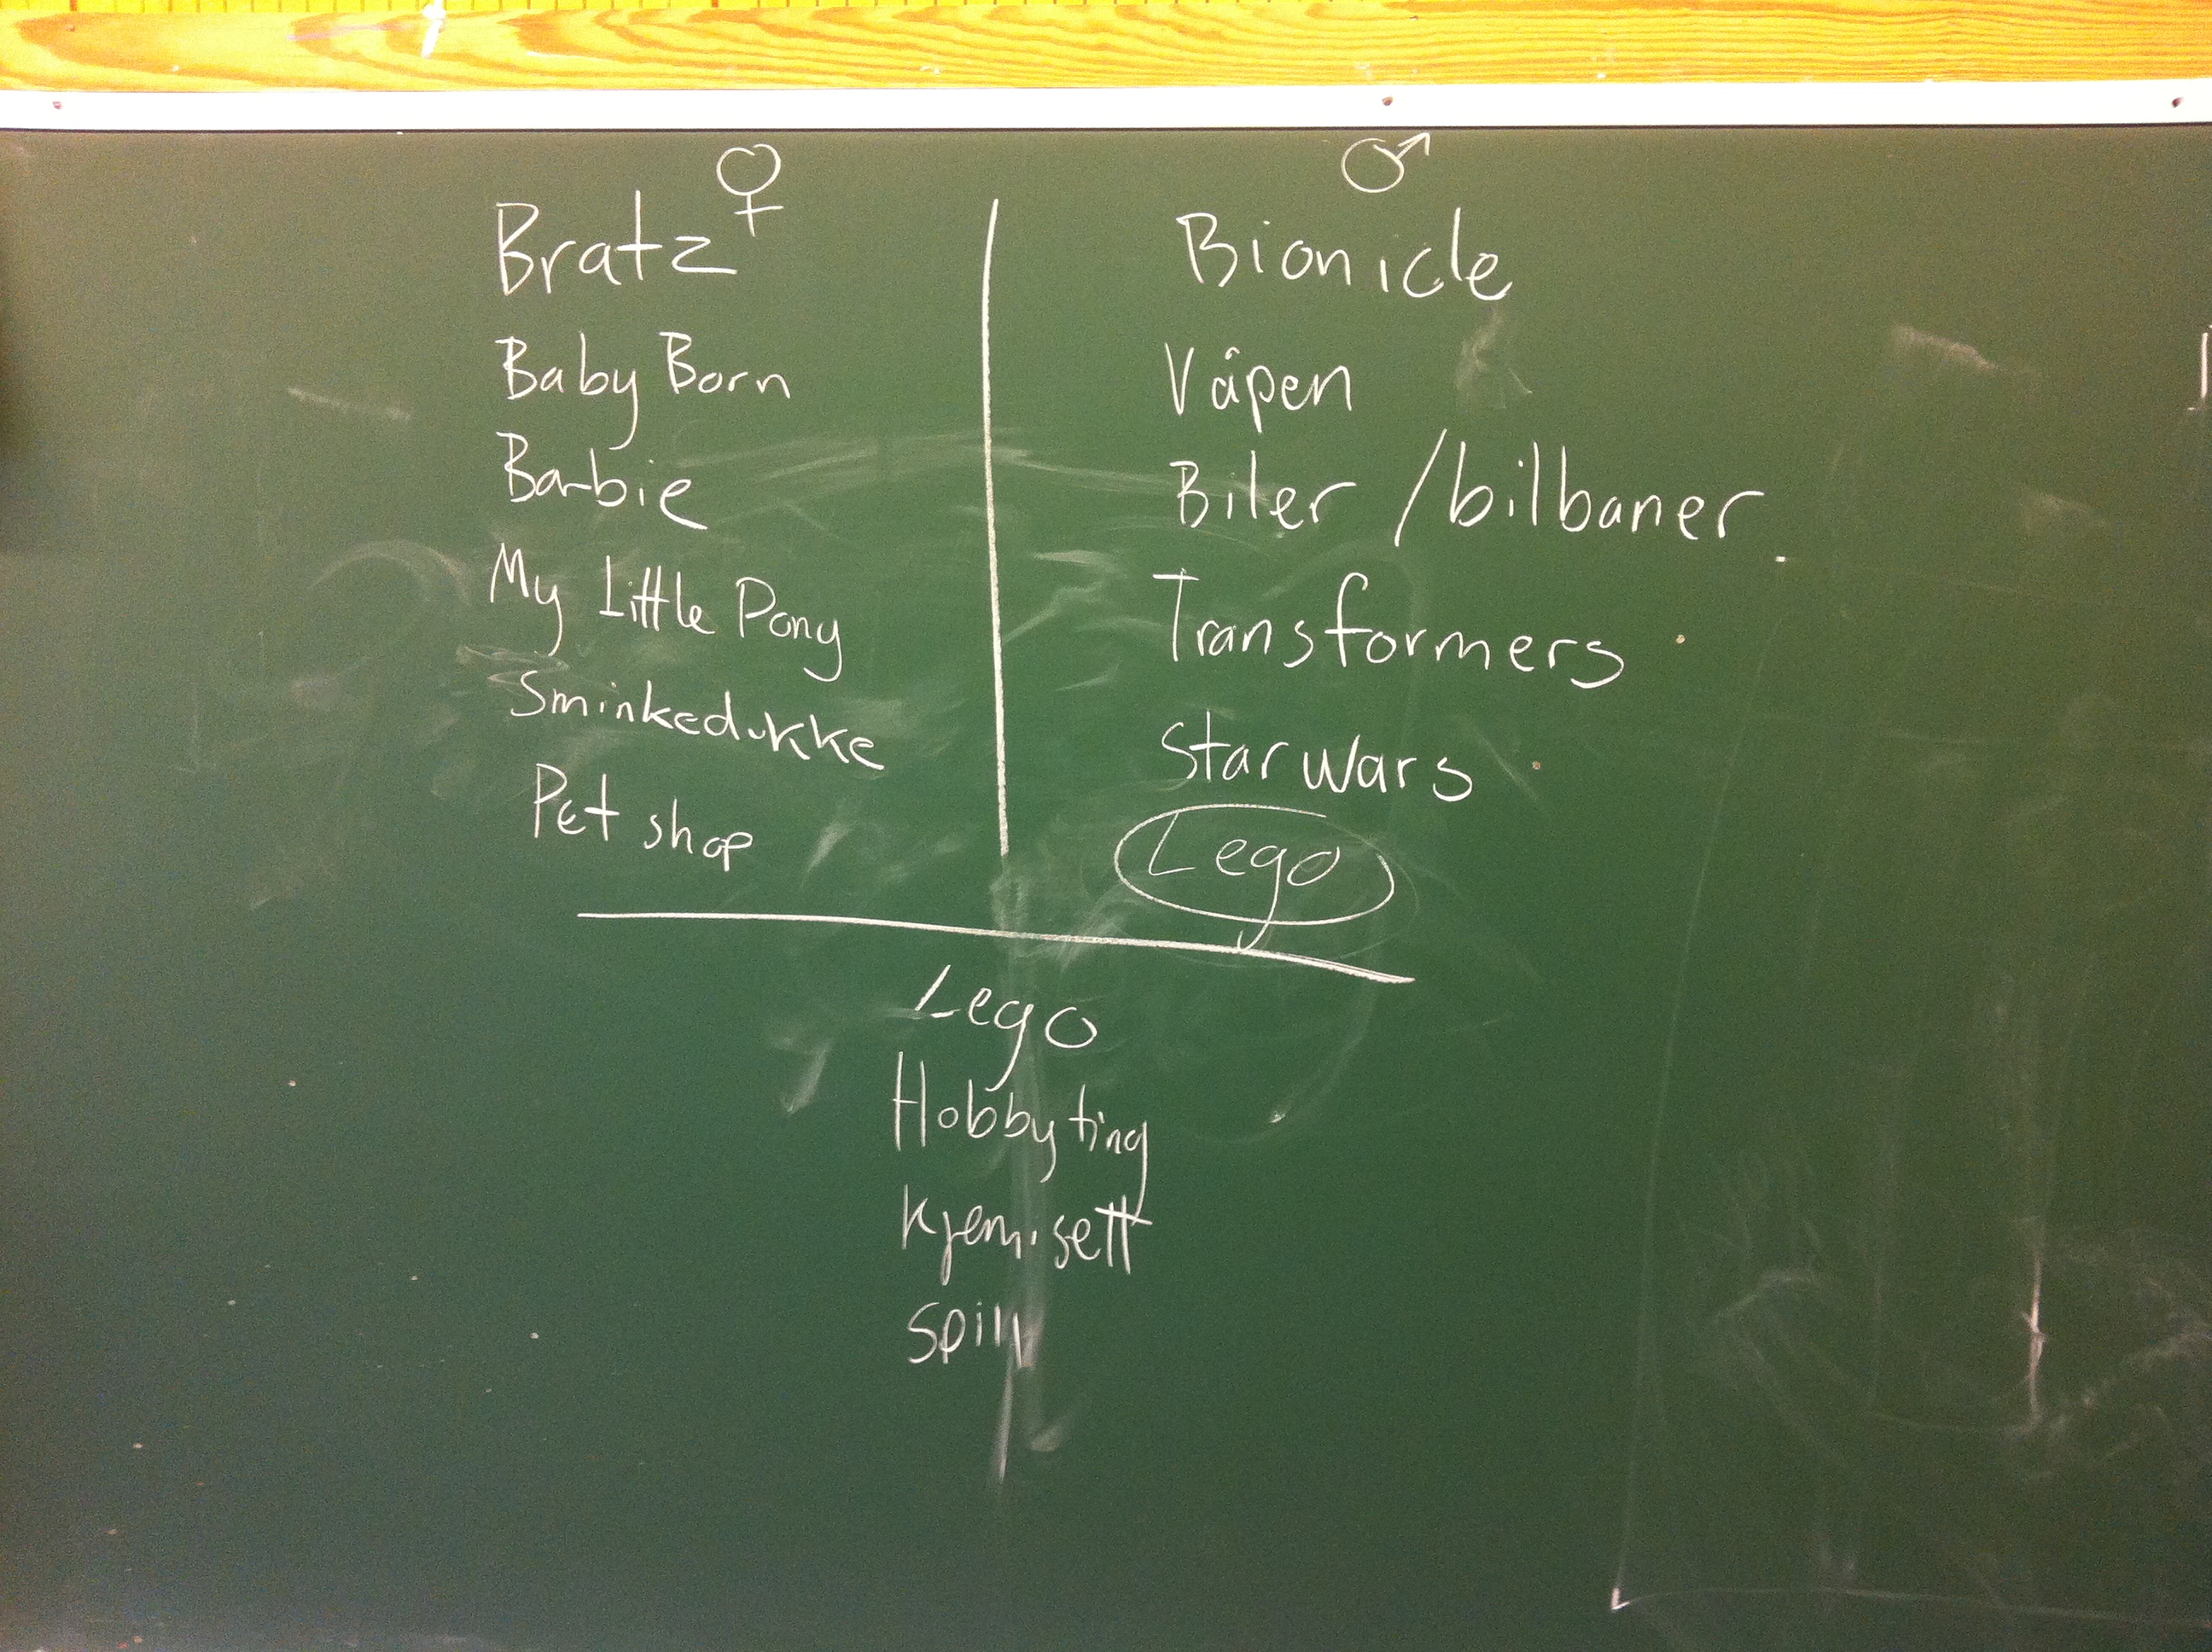 ♀
Bratz
Baby Born
Barbie
My Little Pony
Sminkedukke
Pet shop
♂
Bionicle
Våpen
Biler /bilbaner
Transformers
Star Wars
Lego
Lego
Hobbyting
Kjemisett
Spill